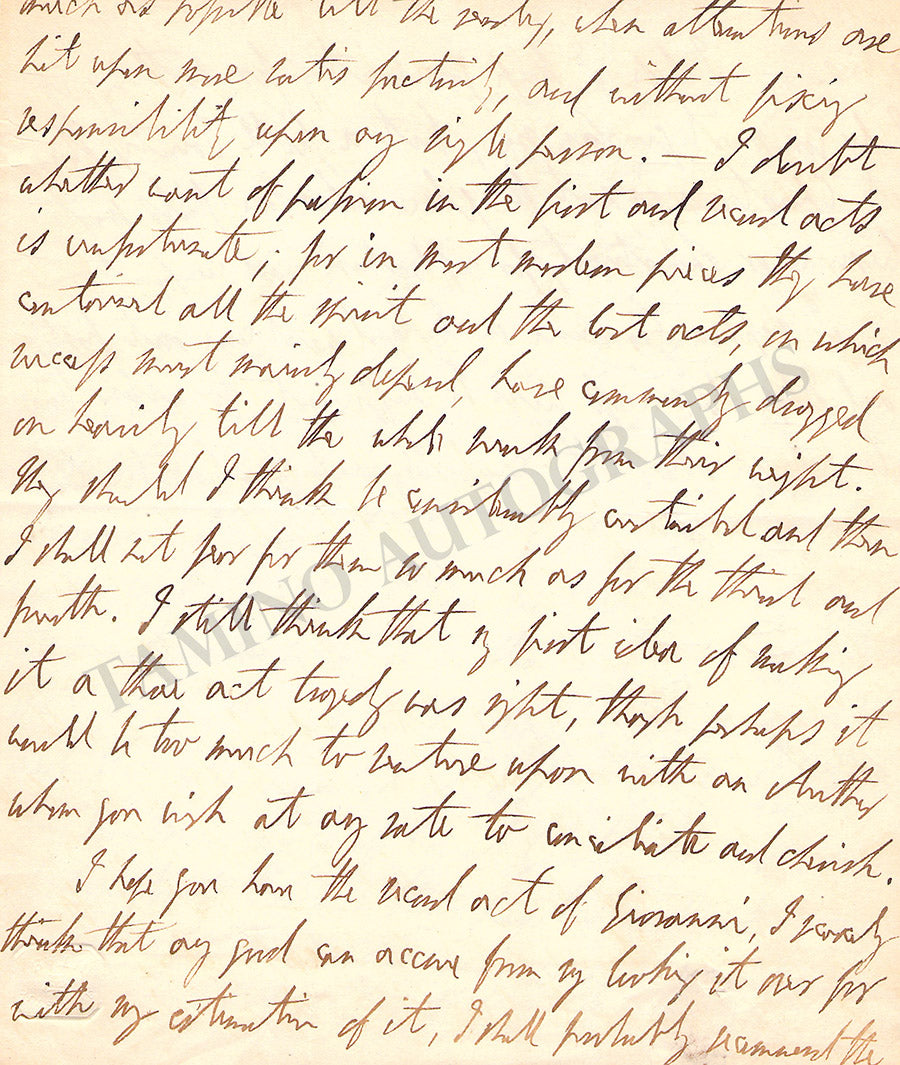 much as possible till the ready, when alterations are
hit upon more satisfactorily, and without fixing
responsibility upon any single person. — I doubt
whether want of passion in the first and second acts
is unfortunate; for in most modern pieces they have
contained all the spirit and the last acts, on which
success must mainly depend, have commonly dragged
on heavily till the whole sunk from their weight.
They should I think be considerably curtailed and then
I shall not fear for them so much as for the third and
fourth. I still think that my first idea of making
it a three act tragedy was right, though perhaps it
would be too much to venture upon with an Author
whom you wish at any rate to conciliate and cherish.
I hope you have the second act of Giovanni, I scarcely
think that any good can accrue from my looking it over for
with my estimation of it, I shall probably recommend the
TAMINO AUTOGRAPHS